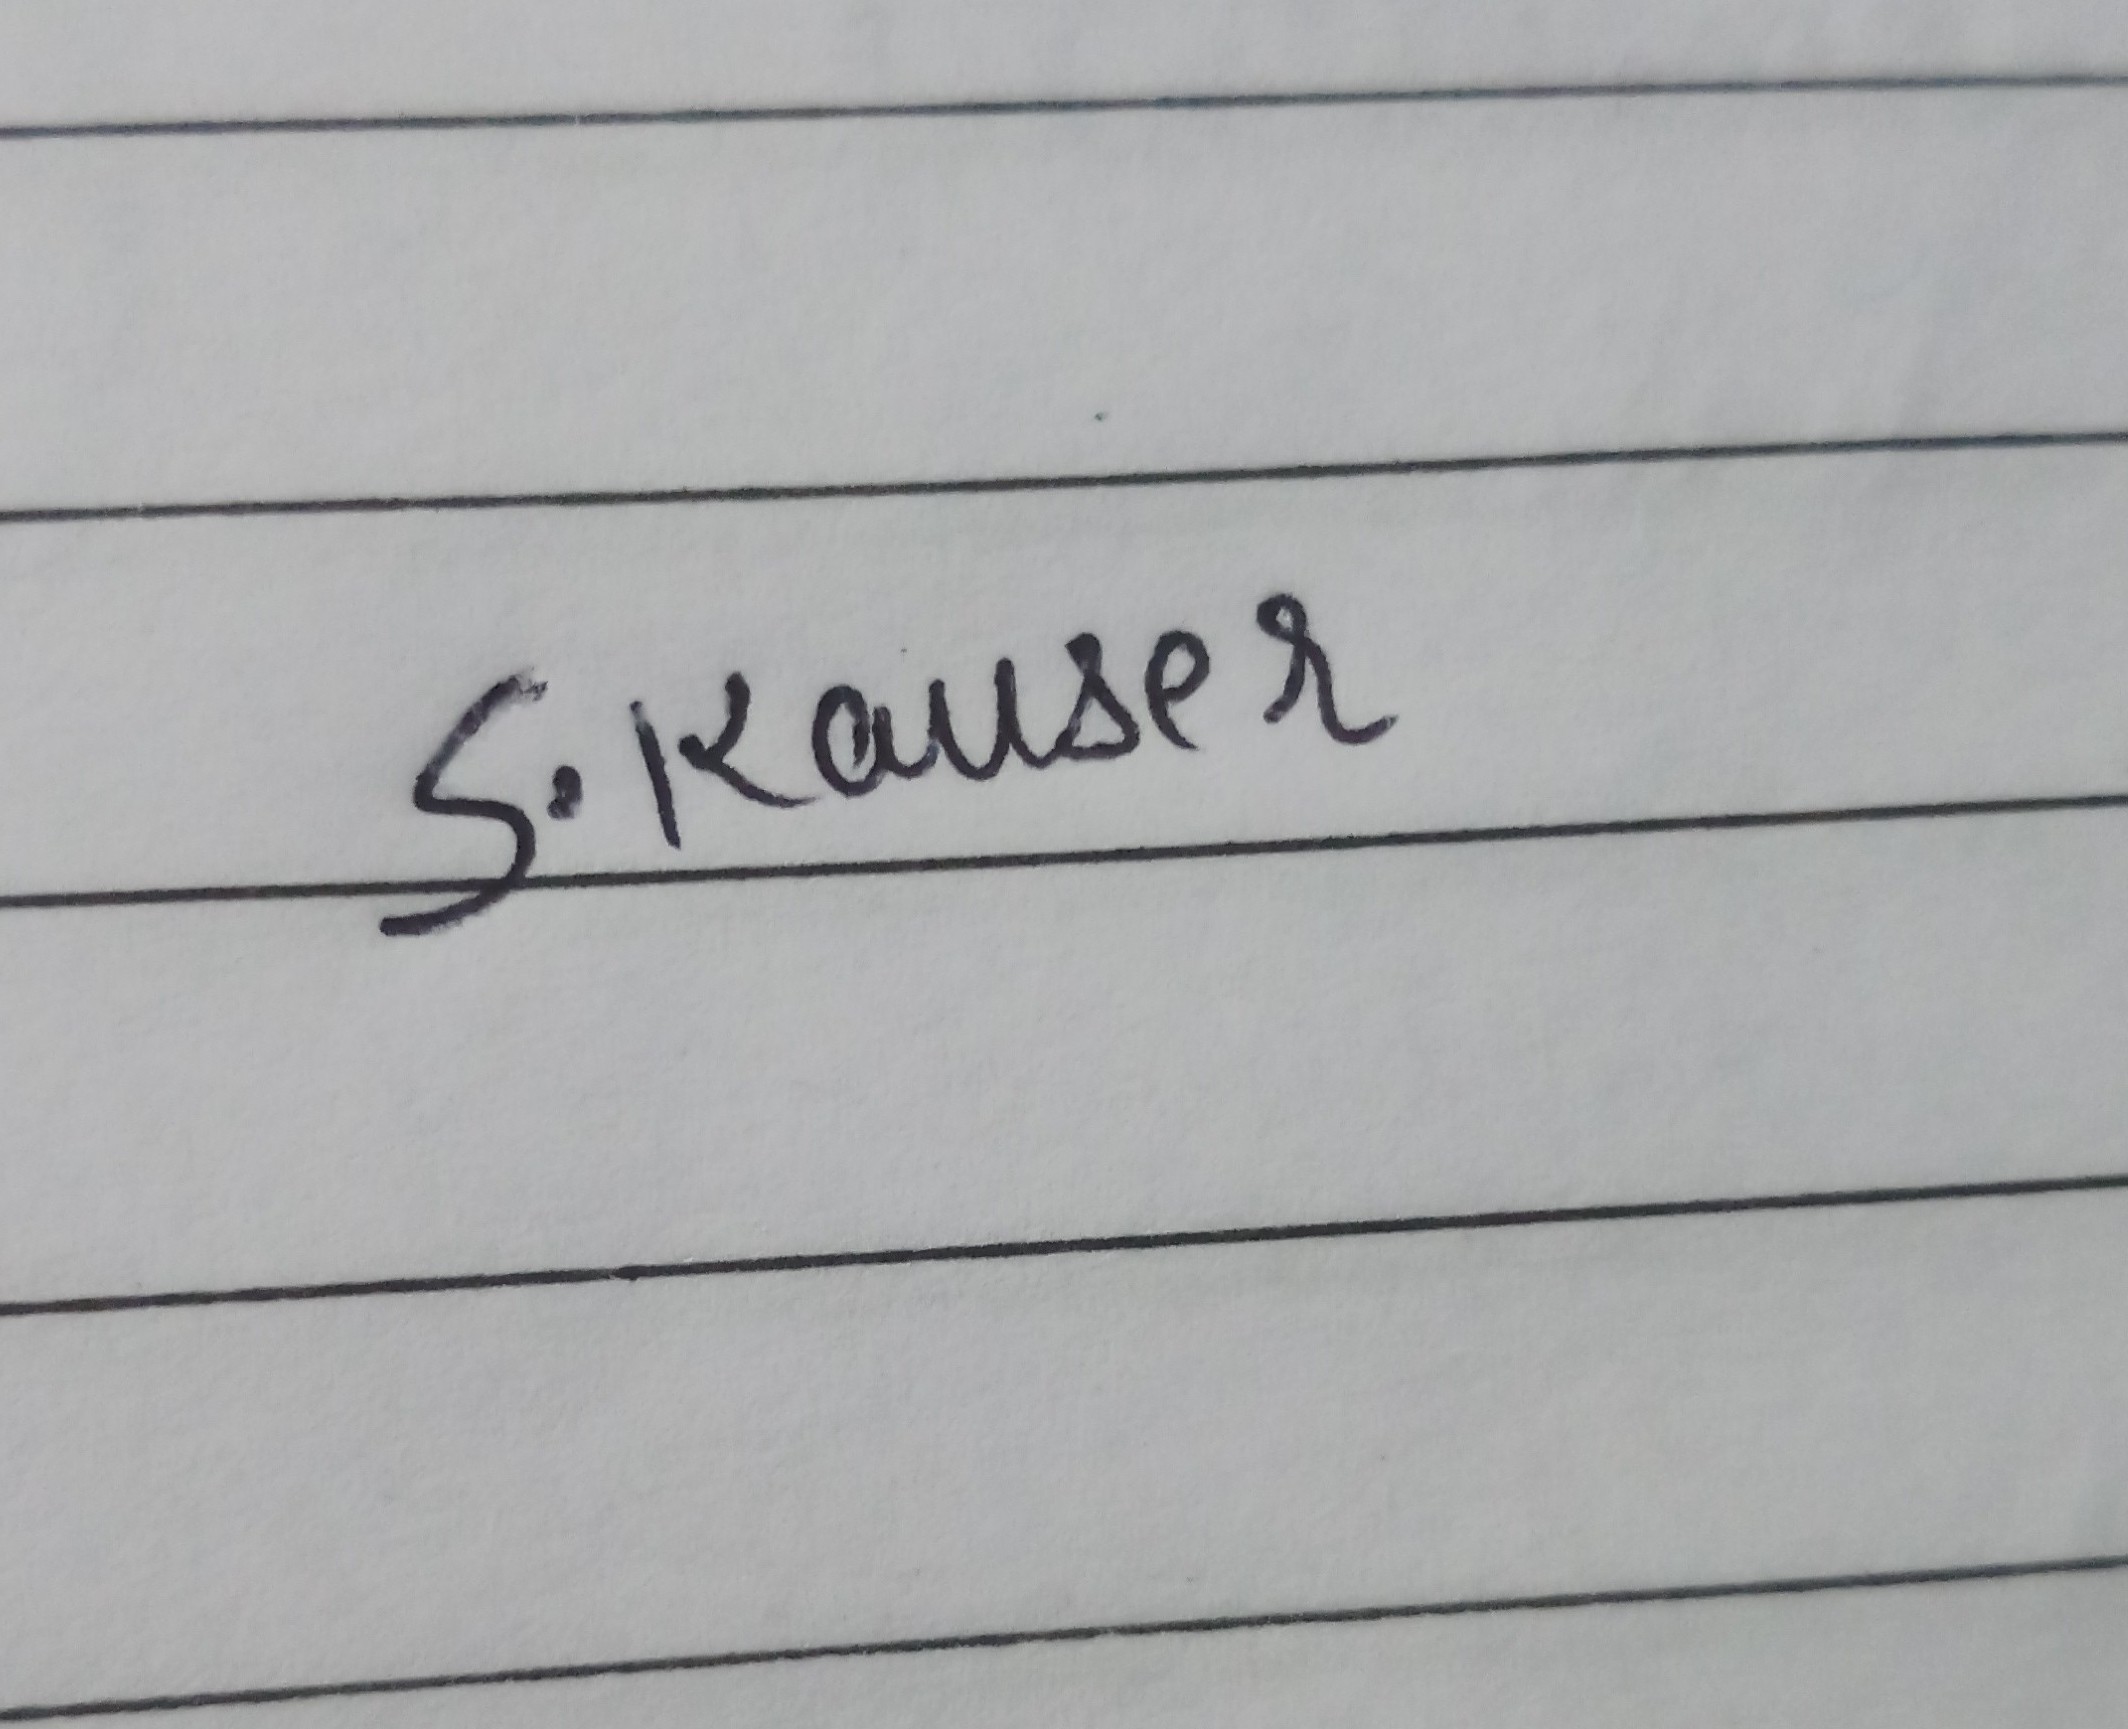 S. Kauser